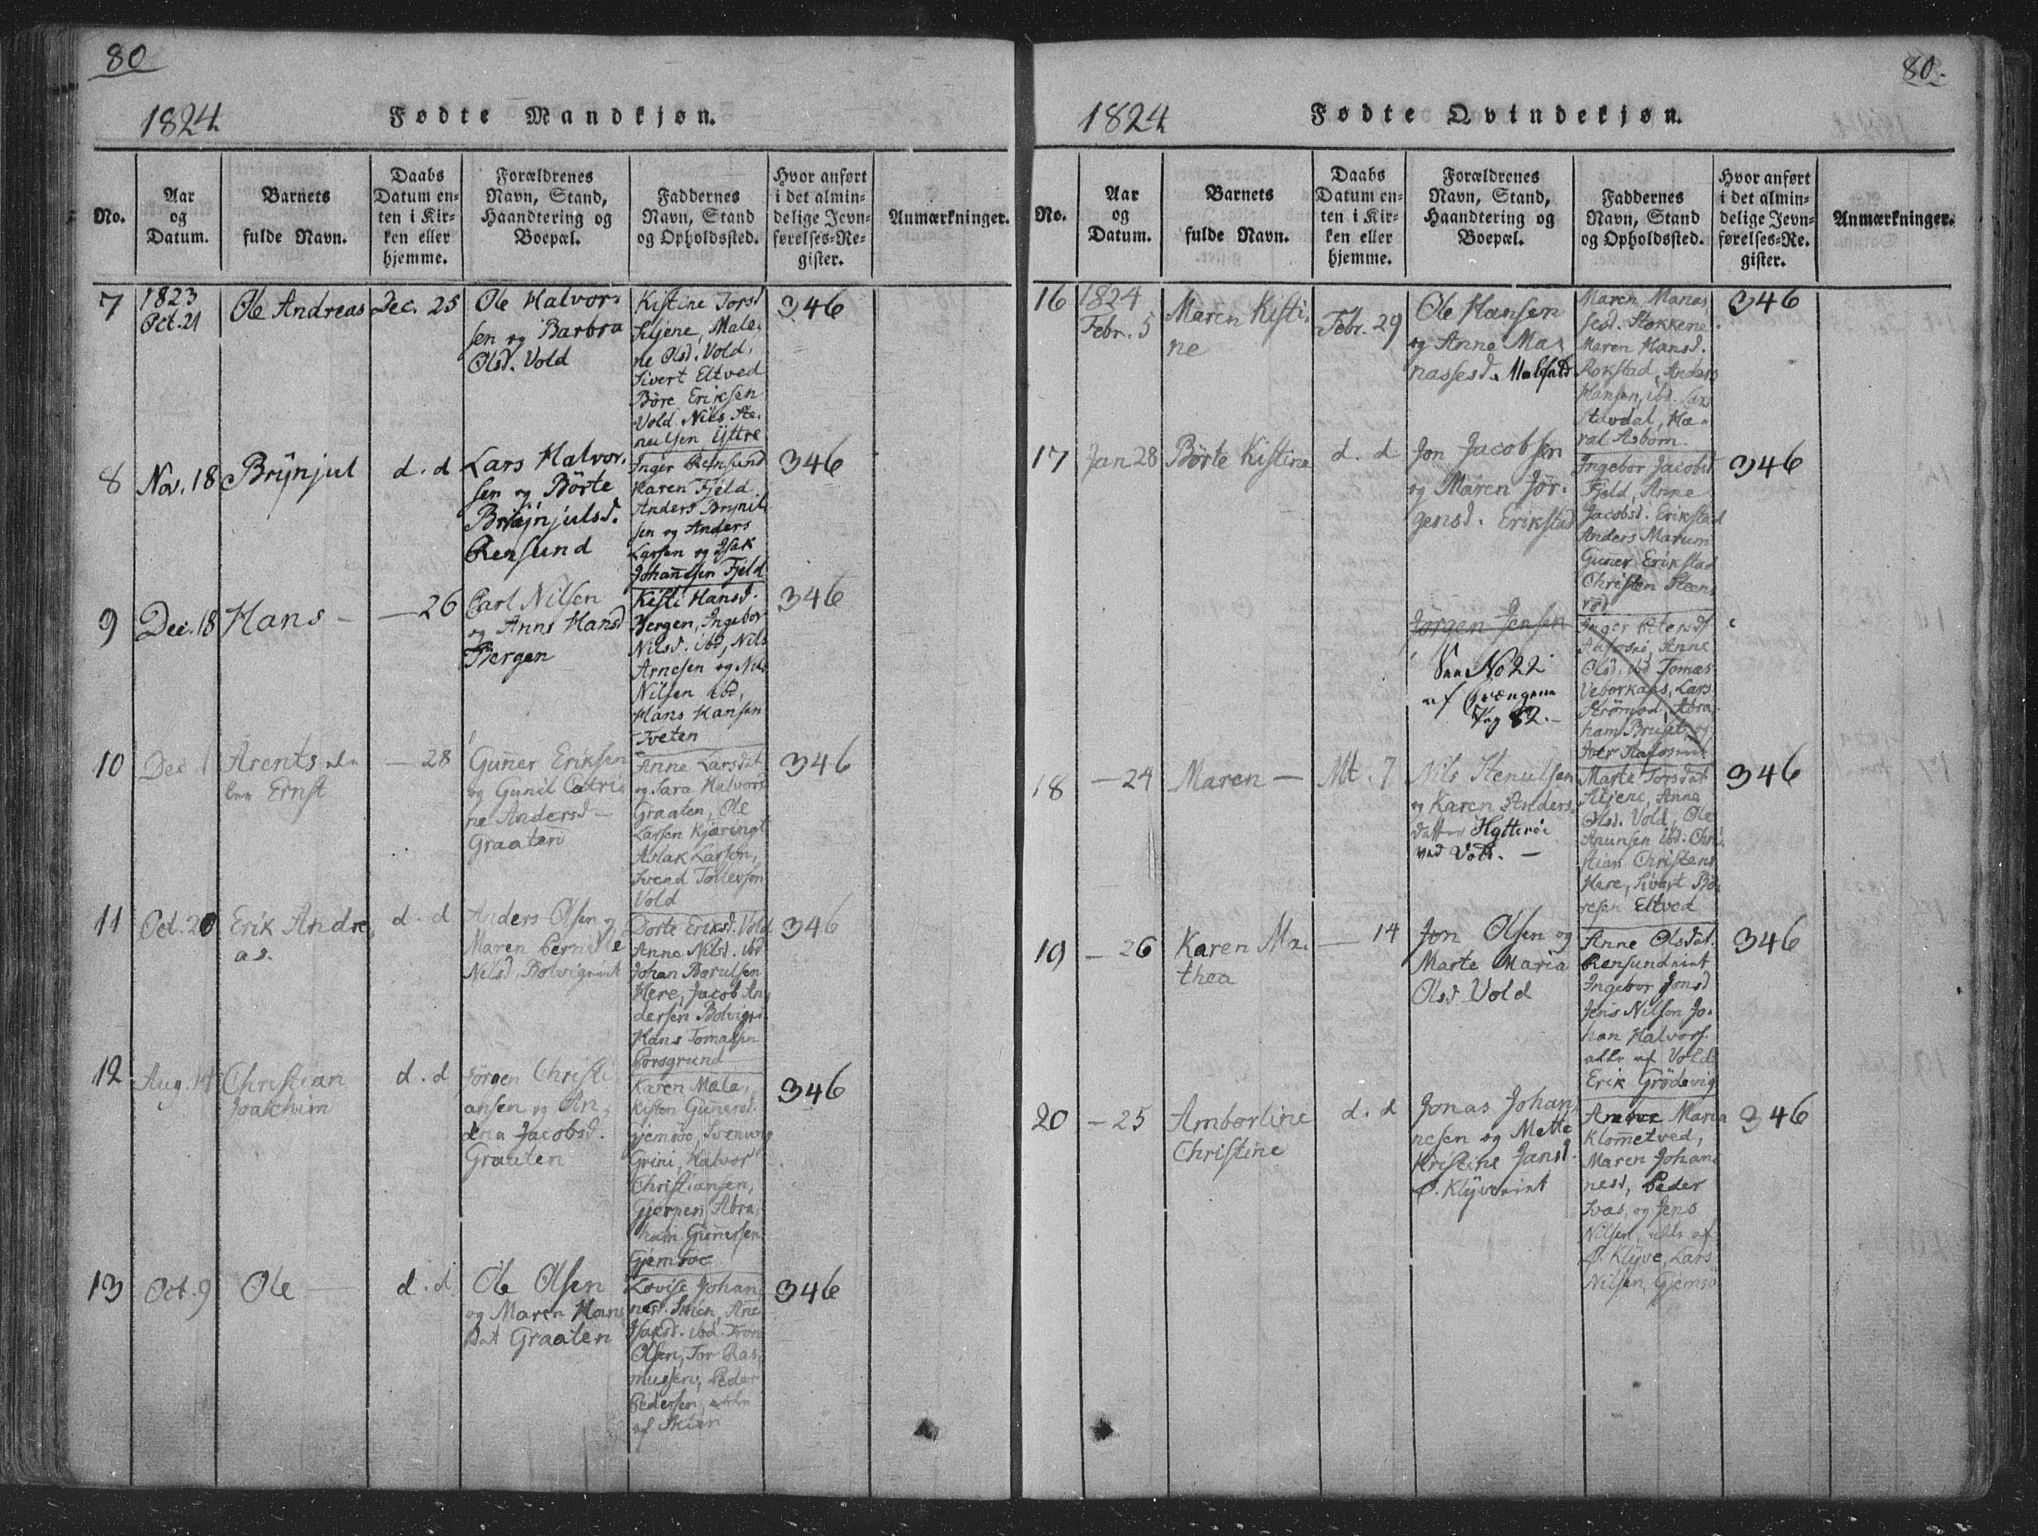 80
1824
Fødte Mandkjøn.
No.
Aar
og
Datum.
Barnets
fulde Navn.
Daabs
Datum en-
ten i Kir-
ken eller
hjemme.
Forældrenes
Navn, Stand,
Haandtering og
Boepæl.
Faddernes
Navn, Stand
og Opholdssted.
Hvor anført
i det almin-
delige Jevn-
førelses-Re-
gister.
Anmærkninger.
7
1823
Oct. 21
Ole Andreas
Dec. 25
Ole Halvor-
sen og Barbra
Olsd. Vold
Kistine Torsd
Stjene, Male-
ne Olsd. Vold,
Sivert Eltved
Børe Eriksen
Vold. Nils Ste-
nulsen Yttre
346
8
Nov. 18
Brynjul
d. d
Lars Halvor-
sen og Børte
Brynjulsd.
Rensund
Inger Rensund
Karen Fjeld
Anders Brynil-
sen og Anders
Larsen og Isak
Johannsen Fjeld
346
9
Dec. 18
Hans -
- 26
Carl Nilsen
og Anne Hansd
Bergen
Kisti Hansd.
Bergen, Ingebor
Nilsd. ibd, Nils
Arnesen og Nils
Nilsen ibd,
Hans Hansen
Tveten
346
10
Dec. 1
Arents
Ernst
- 28
Gunner Eriksen
og Gunil Catri-
ne Andersd -
Graaten
Anne Larsdat
og Sara Halvors
Graaten, Ole
Larsen Kjæringt
Aslak Larsøn,
Svend Tollevson
Vold
346
11
Oct. 20
Erik Andre-
as.
d. d
Anders Olsen og
Maren Pernille
Nilsd. Bolvigeint
Dorte Eriksd. Vold
Anne Nilsd. ibd
Johan Børulsen
Here, Jacob An-
dersen Bolvigei
Hans Tomassen
Porsgrund
346
12
Aug. 14
Christian
Joakhim
d. d
Jørgen Christi-
ansen og An-
drea Jacobsd.
Graaten
Karen Mæla,
Kisten Gunersd.
Gjemsøe, Svenung
Grini, Halvor
Christiansen,
Gjerpen, Abra-
ham Gunersen
Gjemsøe
346
13
Oct. 9
Ole -
d. d.
Ole Olsen
og Maren Hans
dat Graaten
Lovise Johan-
nesd. Skien, Ane
Isaksd. ibd. Tron
Olsen, Tor Ras-
mussen, Peder
Pedersen, alle
af Skien
346
80.
1824
Fødte Qvindekjøn.
No.
Aar
og
Datum.
Barnets
fulde Navn.
Daabs
Datum en-
ten i Kir-
ken eller
hjemme.
Forældrenes
Navn, Stand,
Haandtering og
Boepæl.
Faddernes
Navn, Stand
og Opholdssted.
Hvor anført
i det almin-
delige Jevn-
førelses-Re-
gister.
Anmærkninger.
16
1824
Febr. 5
Maren Kisti-
ne
Febr. 29
Ole Hansen
og Anne Ma-
nassesd.
Maren Manas-
sesd. Stokkene.
Maren Hansd.
Rokstad, Anders
Hansen, ibd. Lars
Stavdal, Ha-
ral Asbørn
346
17
Jan 28
Børte Kistine
d. d
Jon Jacobsen
og Maren Jør-
gensd. Erikstad
Ingebor Jacobsd
Fjeld, Anne
Jacobsd. Erikstad
Anders Marum
Guner Erikstad
Christen Steens-
rød
346
Jørgen Jensen
No 22
af Drengene
Pag 82. -
Inger
Anne
Olsd. ibd Tomas
Veborkaas, Lars
Strømod, Abra-
ham Bruset, og
Iver
18
- 24
Maren -
Mt. 7
Nils Stenulsen
og Karen Anders-
datter Hytterøi
ved Vold. -
Marte Torsdat
Stjene, Anne
Olsd. Vold, Ole
Anunsen ibd. Chri-
stian Christens
Here, Sivert Bø-
resen Eltved
346
19
- 26
Karen Ma-
thea
- 14
Jon Olsen og
Marte Maria
Olsd Vold
Anne Olsdat.
Rensundeint
Ingebor Jonsd
Jens Nilson Jo-
han Halvors.
alle af Vold
Erik Grødevig
346
20
- 25
Amborline
Christine
d. d
Jonas Johan-
nesen og Mette
Kristine Jansd.
Ø. Klyveeint
Maria
Klommetved,
Maren Johan-
nesd, Peder
Ivas, og Jens
Nilsen, alle af
Ø. Klyve, Lars
Nilsen, Gjemsø
346